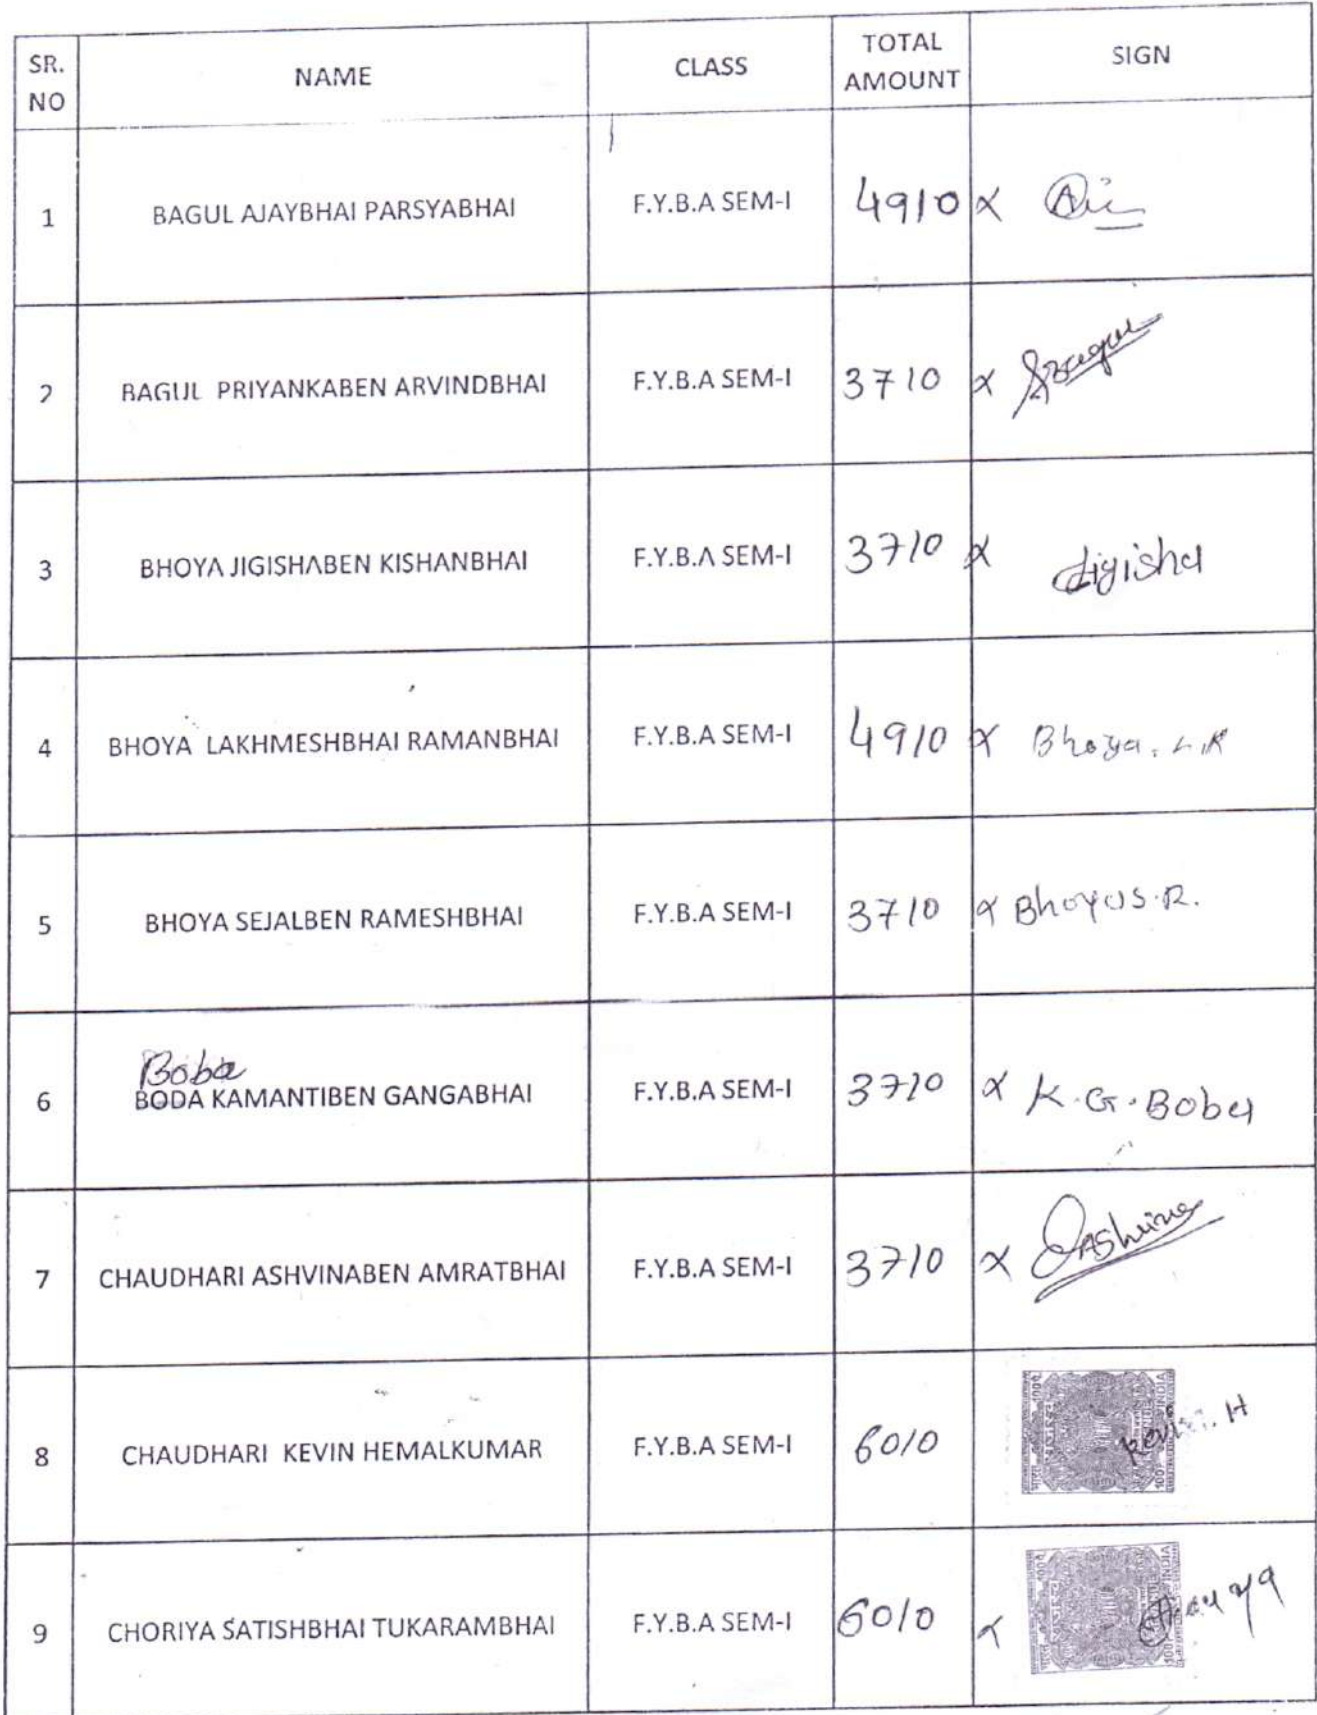 SR. NO NAME CLASS TOTAL AMOUNT SIGN
1 BAGUL AJAYBHAI PARSYABHAI F.Y.B.A SEM-I 4910
2 BAGUL PRIYANKABEN ARVINDBHAI F.Y.B.A SEM-I 3710
3 BHOYA JIGISHABEN KISHANBHAI F.Y.B.A SEM-I 3710 Jigisha
4 BHOYA LAKHMESHBHAI RAMANBHAI F.Y.B.A SEM-I 4910 Bhoya. L.R
5 BHOYA SEJALBEN RAMESHBHAI F.Y.B.A SEM-I 3710 Bhoya S.R.
Boba
6 BODA KAMANTIBEN GANGABHAI F.Y.B.A SEM-I 3710 K.G.Boba
7 CHAUDHARI ASHVINABEN AMRATBHAI F.Y.B.A SEM-I 3710 Ashvina
8 CHAUDHARI KEVIN HEMALKUMAR F.Y.B.A SEM-I 6010 Kevin. H
9 CHORIYA SATISHBHAI TUKARAMBHAI F.Y.B.A SEM-I 6010